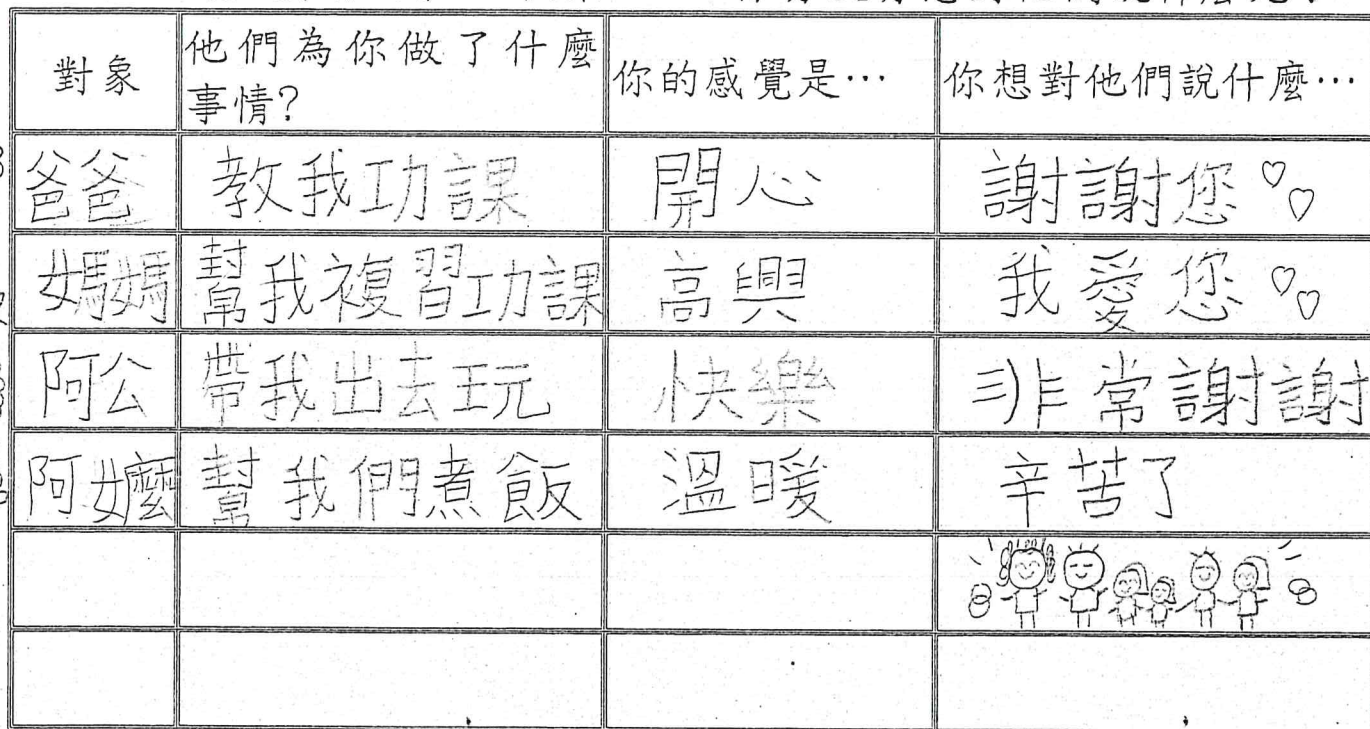 對象 他們為你做了什麼事情? 你的感覺是… 你想對他們說什麼…
爸爸 教我功課 開心 謝謝您
媽媽 幫我複習功課 高興 我愛您
阿公 帶我出去玩 快樂 非常謝謝
阿嬤 幫我們煮飯 溫暖 辛苦了